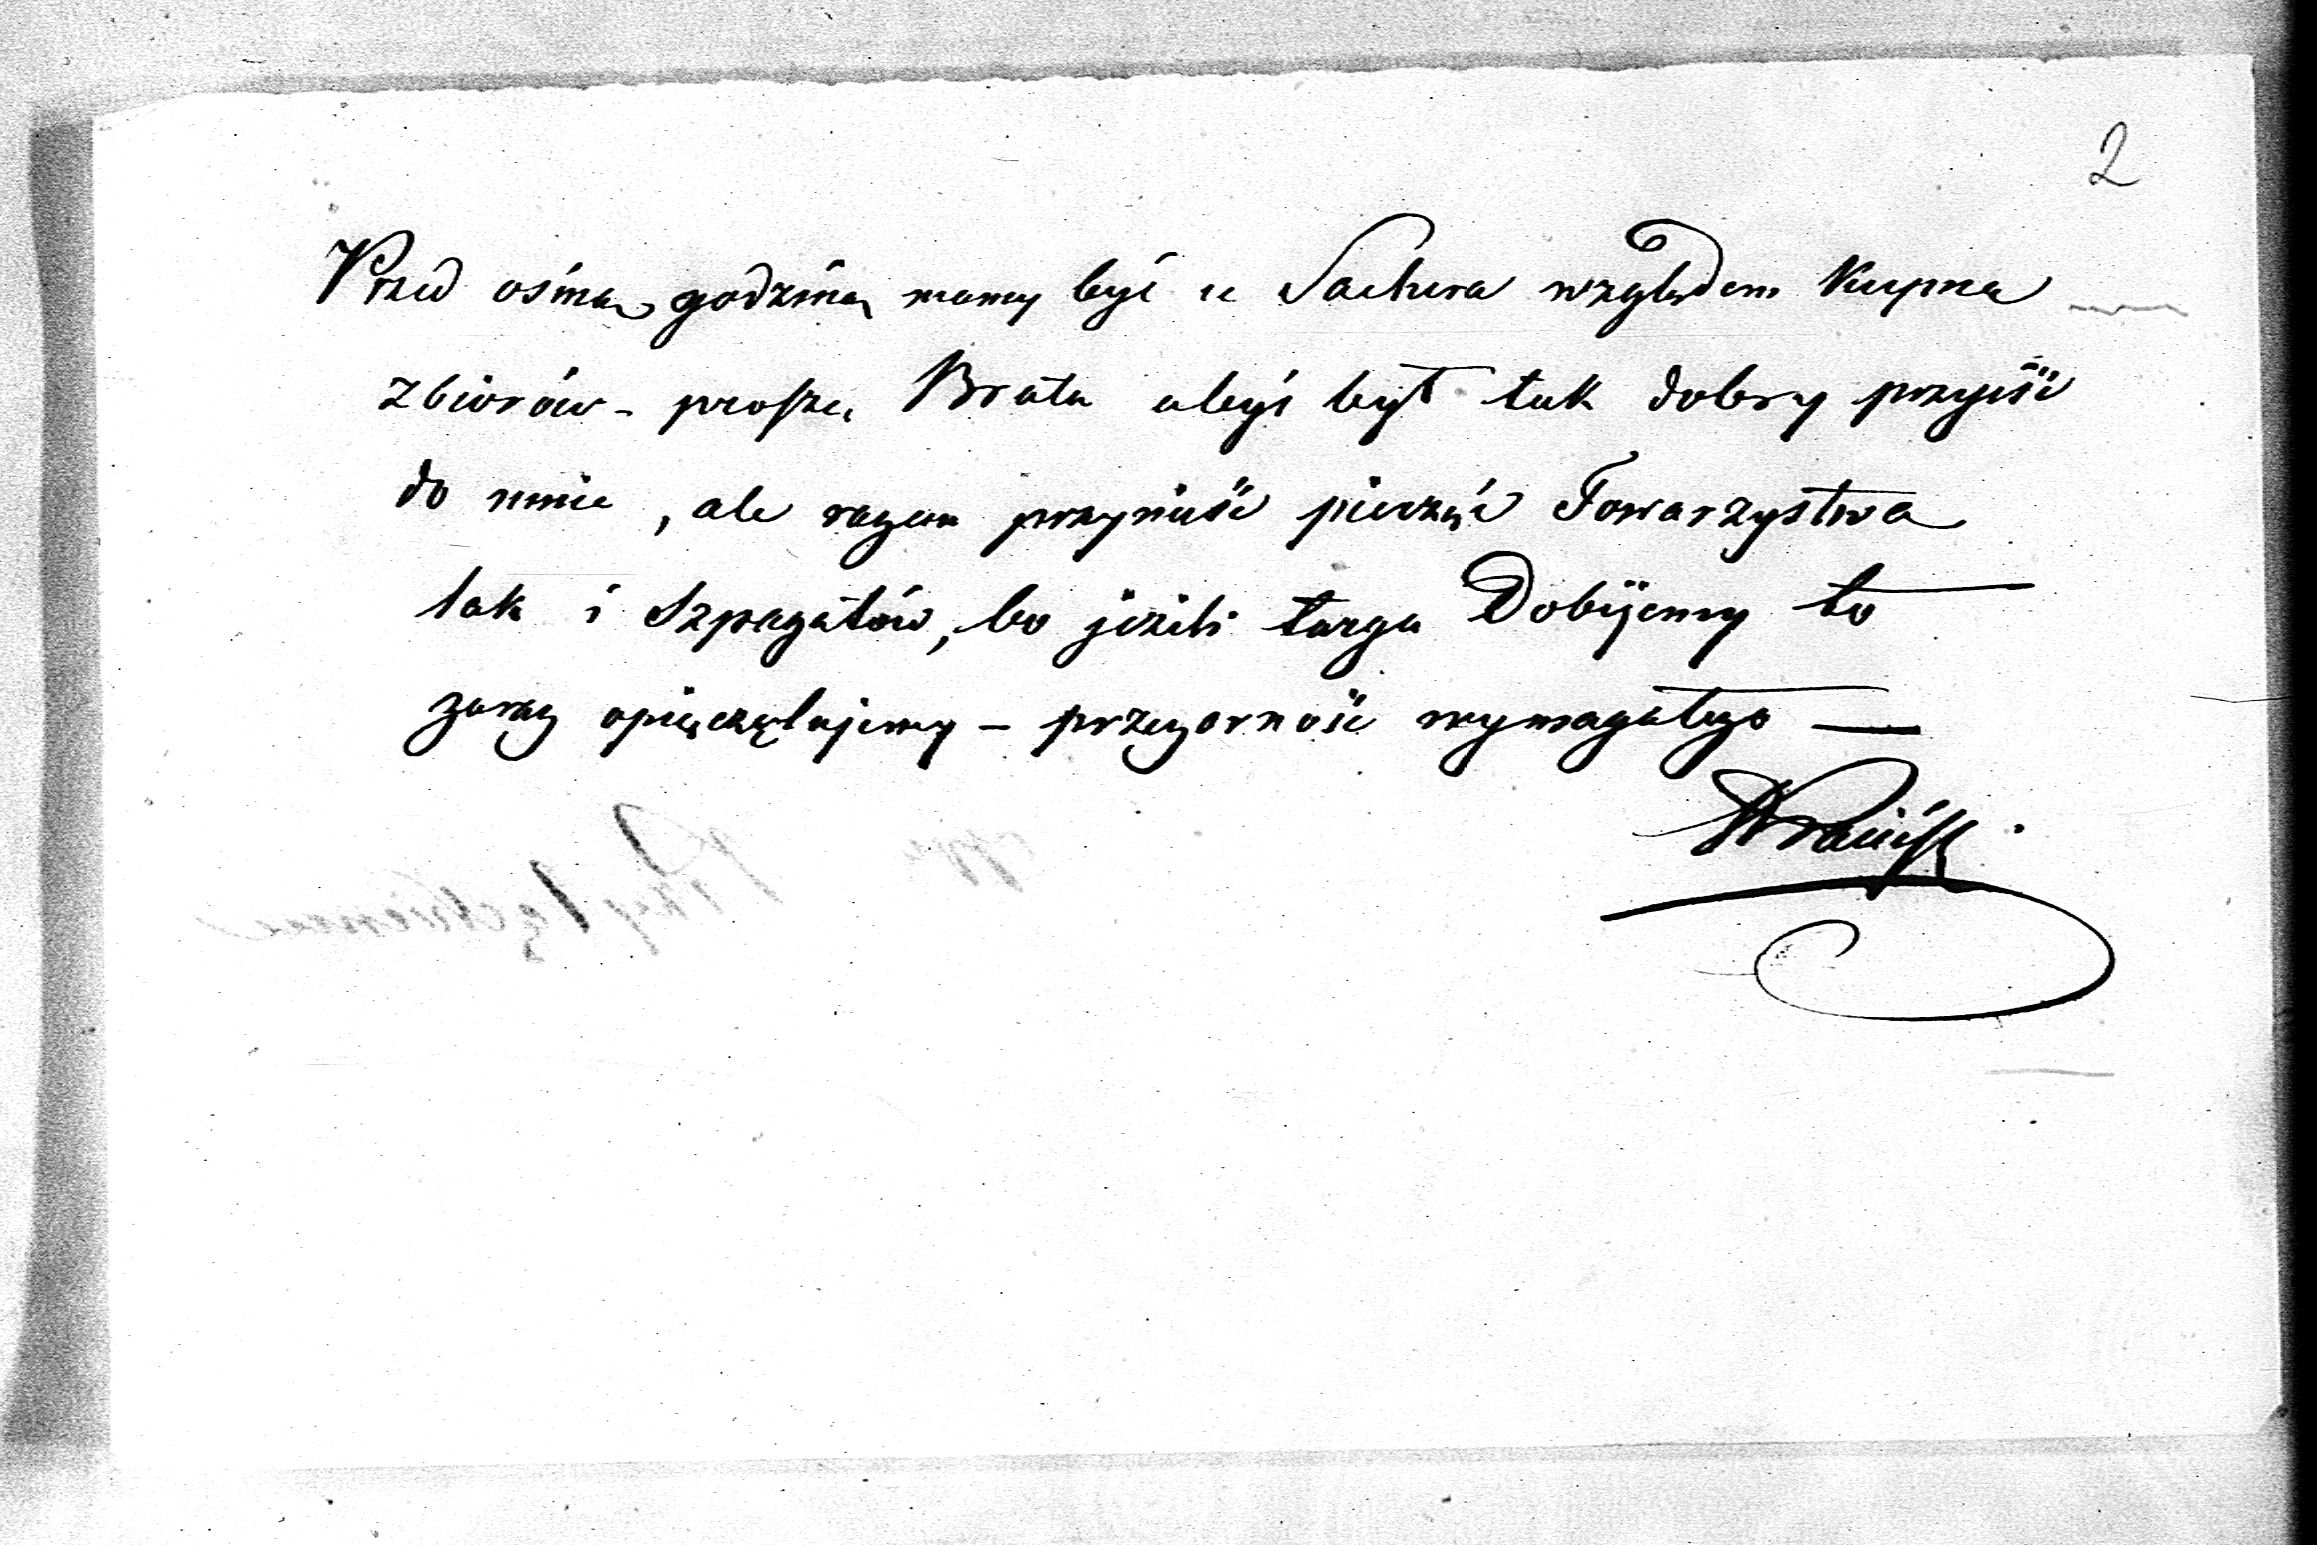 2
Przed ósmą godziną mamy być u Sachera względem Kupna
zbiorów - proszę Brata abyś był tak dobry przyiść
do mnie, ale razem przynieść pieczęć Towarzystwa
lak i Szpagatów, bo jeżeli targu Dobijemy to
zaraz opięczętujemy - przezorność wymaga tego —